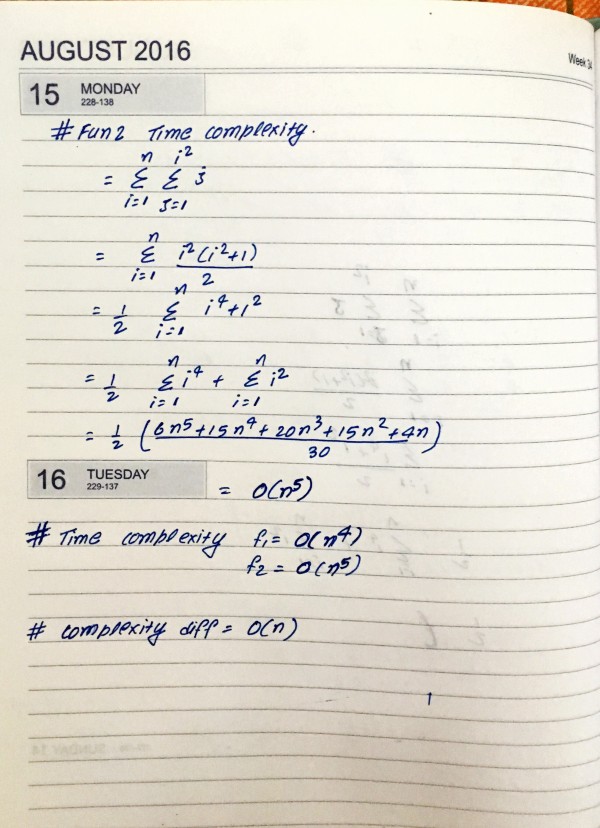 AUGUST 2016
Week 34
15 MONDAY
228-138
# Fun2 Time complexity.
= n Σ i=1 i² Σ j=1 j
= n Σ i=1 i²(i²+1) / 2
= 1/2 n Σ i=1 i⁴+i²
= 1/2 n Σ i=1 i⁴ + n Σ i=1 i²
= 1/2 (6n⁵+15n⁴+20n³+15n²+4n / 30)
16 TUESDAY
229-137
= O(n⁵)
# Time complexity f₁= O(n⁴)
f₂ = O(n⁵)
# complexity diff = O(n)